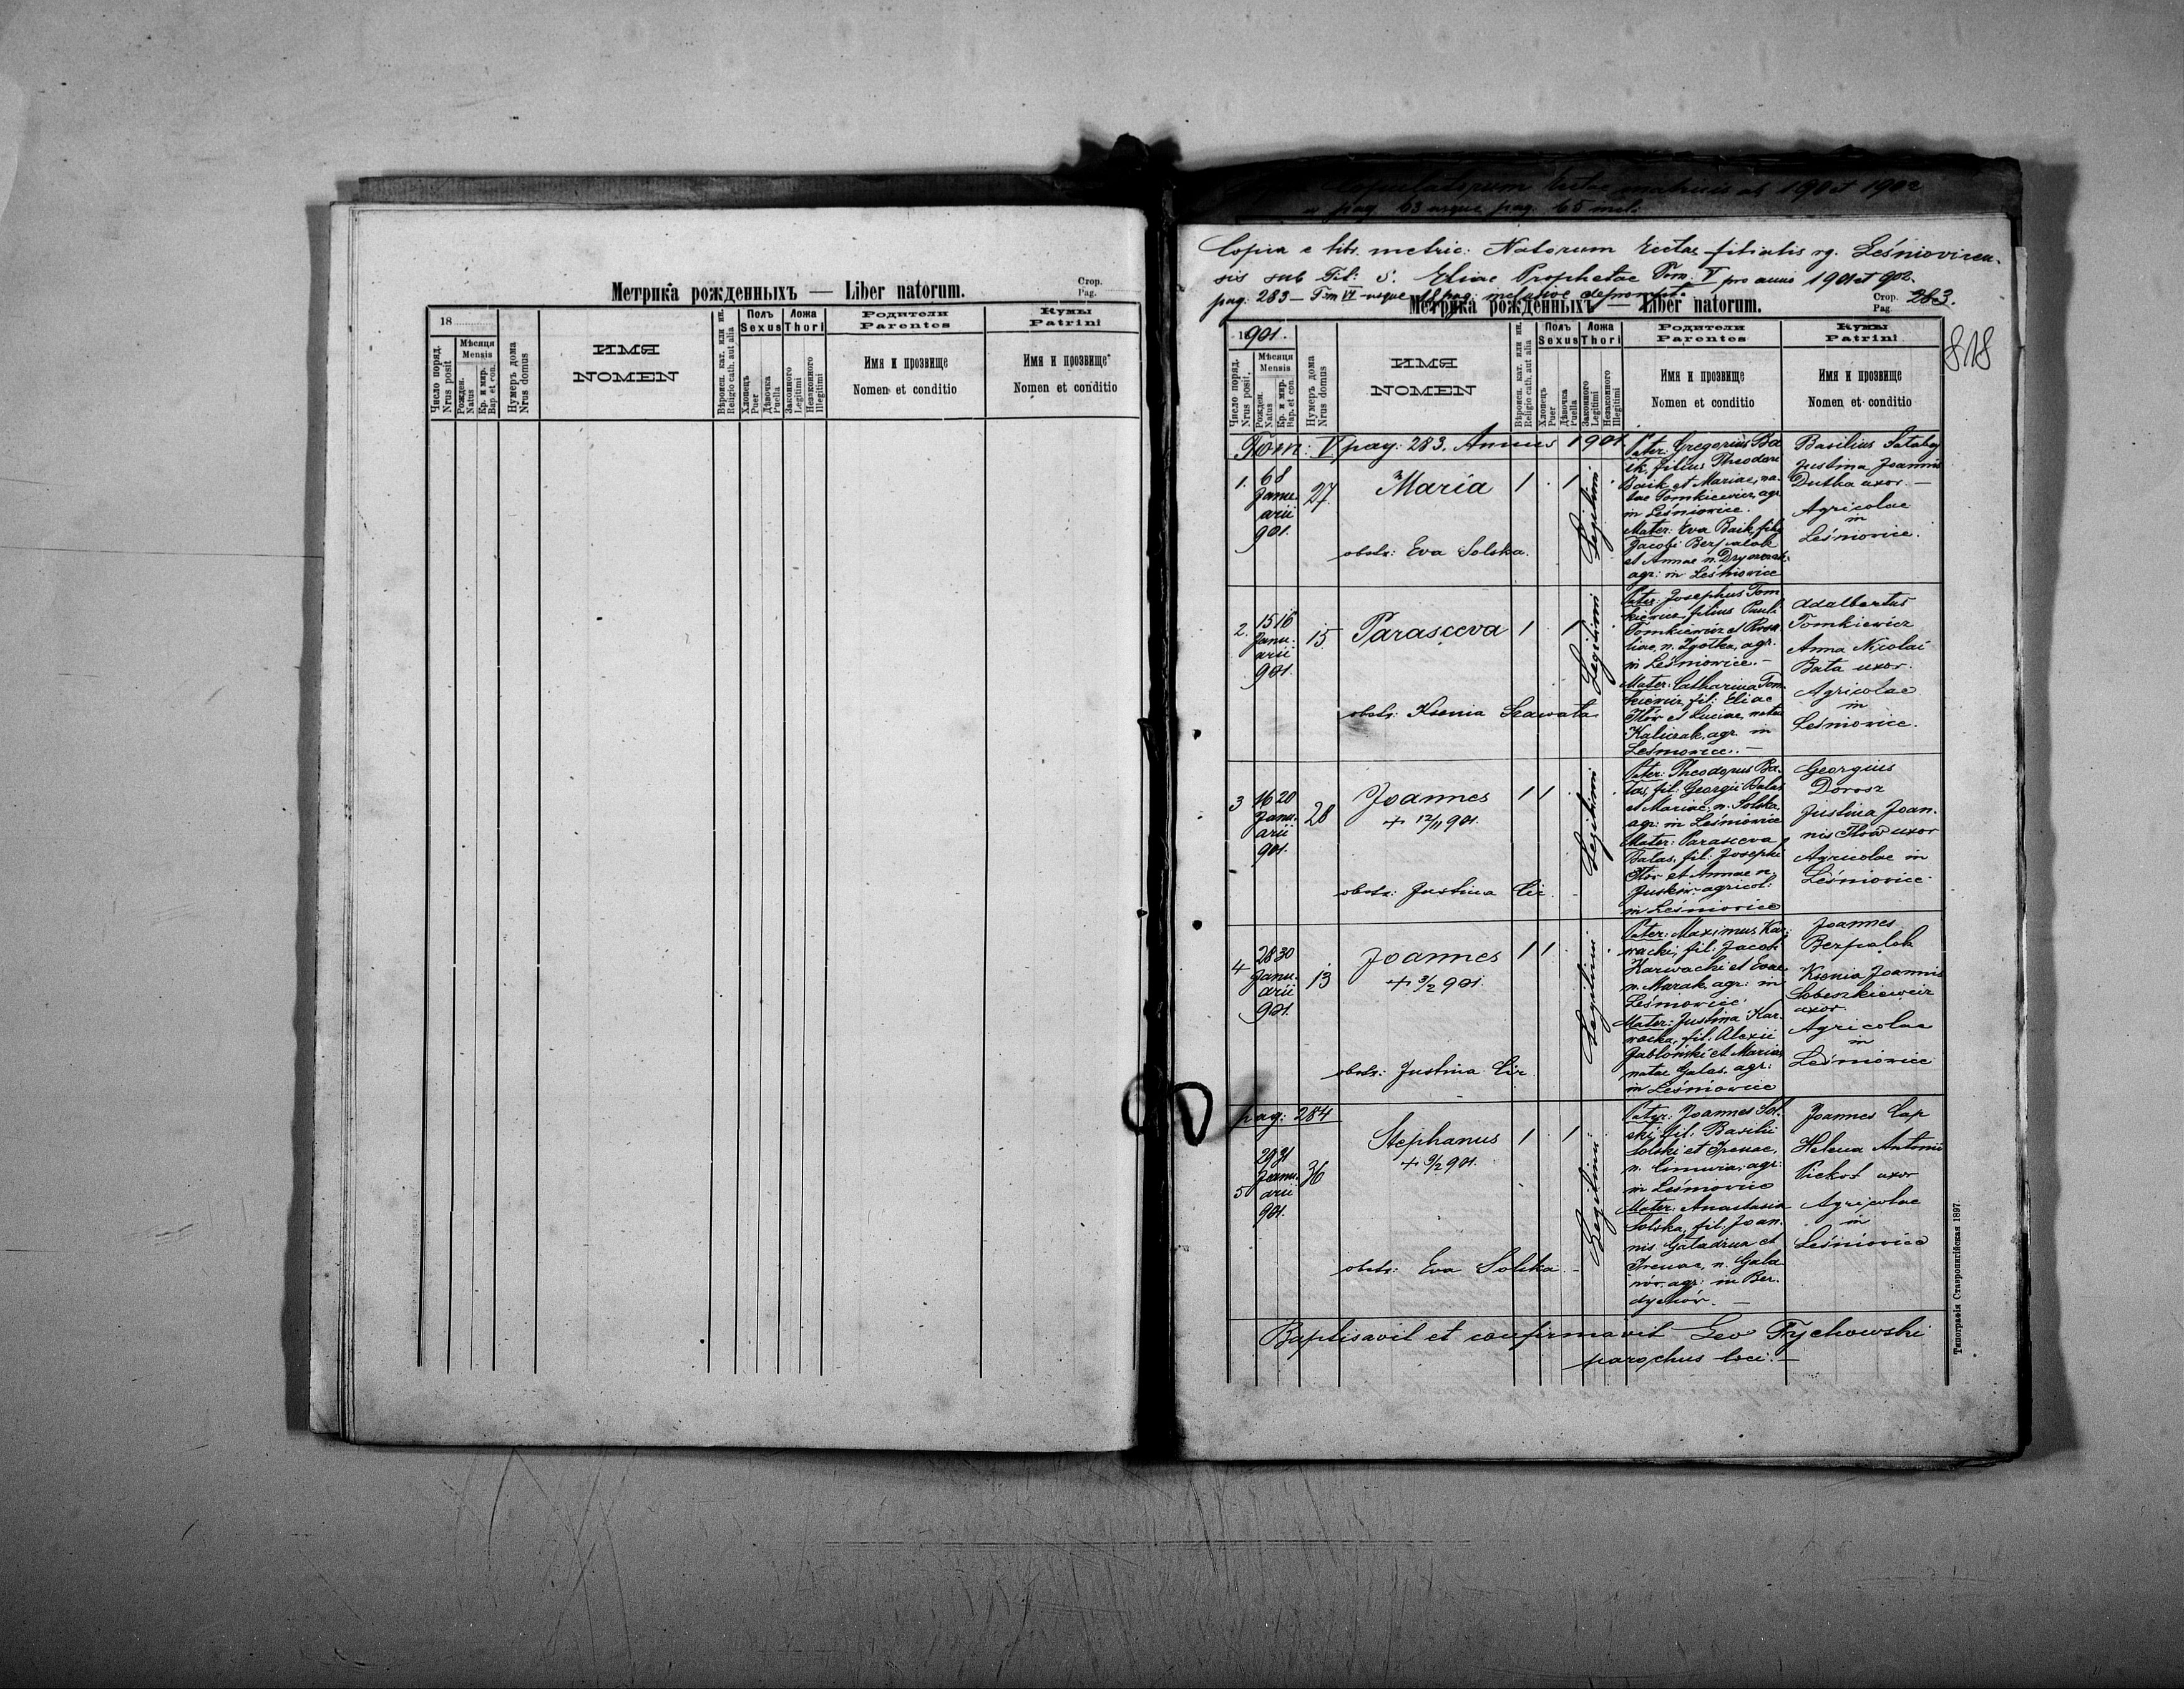 Метрика рожденныхъ — Liber natorum.
Стор.
Pag.
18
Число поряд.
Nrus posit
Мѣсяця
Mensis
Рожден.
Natus
Кр. и мир.
Bap. et con.
Нумеръ дома
Nrus domus
ИМЯ
NOMEN
Вѣроисп. кат. или ин.
Religio cath. aut alia
Полъ
Sexus
Хлопець
Puer
Дѣвочка
Puella
Ложа
Thori
Законного
Legitimi
Незаконного
Illegitimi
Родители
Parentes
Имя и прозвище
Nomen et conditio
Кумы
Patrini
Имя и прозвище
Nomen et conditio
Copulatorum matricis ab 1901 et 1902
a pag. 63 usque pag. 65 incl.
Copia e libr. metric: Natorum Eccl. filialis rg. Leśniovicen-
sis sub Tit: S. Eliae Prophetae Tom: V pro anni 1901 et 902
pag. 283 — Tom VI usque pag. inclusive
Метрика рожденныхъ — Liber natorum.
Стор.
Pag.
283.
818
1901.
Число поряд.
Nrus posit.
Мѣсяця
Mensis
Рожден.
Natus
Кр. и мир.
Bap. et con.
Нумеръ дома
Nrus domus
ИМЯ
NOMEN
Вѣроисп. кат. или ин.
Religio cath. aut alia
Полъ
Sexus
Хлопець
Puer
Дѣвочка
Puella
Ложа
Thori
Законного
Legitimi
Незаконного
Illegitimi
Родители
Parentes
Имя и прозвище
Nomen et conditio
Кумы
Patrini
Имя и прозвище
Nomen et conditio
Tom: V pag: 283. Annus 1901
1. 6 8
Janu-
arii
901.
27
Maria
1 . 1 .
Legitimi
obstr: Eva Solska.
Pater: Gregorius Ba-
ik, filius Theodori
Baik et Mariae, na-
tae Tomkiewicz, agr.
in Leśniowice.
Mater: Eva Baik, filia
Jacobi Berpalok
et Annae n.
agr: in Leśniowice
Basilius
Justina Joannis
Dutka uxor. —
Agricolae
in
Leśniowice.
2. 15 16
Janu-
arii
901.
15
Parasceva
1 . 1 .
Legitimi
obstr: Ksenia
Pater: Josephus Tom-
kiewicz, filius Pauli
Tomkiewicz et Rosa-
liae, n. agr.
in Leśniowice. —
Mater: Catharina Tom-
kiewicz, fil: Eliae
Iłów et Luciae, natae
Kaliczak, agr. in
Leśniowice. —
Adalbertus
Tomkiewicz
Anna Nicolai
Bata uxor.
Agricolae
in
Leśniowice.
3 16 20
Janu-
arii
901.
28
Joannes
+ 12/11 901.
1 1 .
Legitimi
obstr: Justina Cir.
Pater: Theodorus Ba-
las, fil: Georgii Balas
et Mariae, n. Solska,
agr: in Leśniowice
Mater: Parasceva
Balas, fil: Josephi
Iłów et Annae n.
Juśków agricol:
in Leśniowice
Georgius
Dorosz
Justina Joan-
nis Iłów uxor
Agricolae in
Leśniowice
4 28 30
Janu-
arii
901.
13
Joannes
+ 3/2 901.
1 1 .
Legitimi
obstr: Justina Cir.
Pater: Maximus Kar-
wacki, fil: Jacobi
Karwacki et Evae,
n. Marak agr: in
Leśniowice.
Mater: Justina Kar-
wacka, fil: Alexii
Jabłoński et Mariae,
natae Galas, agr:
in Leśniowice
Joannes
Berpalok
Ksenia Joannis
Sobeszkiewicz
uxor.
Agricolae
in
Leśniowice
pag: 284
5 29 31
Janu-
arii
901.
36
Stephanus
+ 9/2 901.
1 . 1
Legitimi
obstr: Eva Solska. —
Pater: Joannes Sol-
ski, fil: Basilii
Solski et Irenae,
n. agr:
in Leśniowice
Mater: Anastasia
Solska, fil: Joan-
nis et
Irenae, n.
agr: in Ber-
dychów. —
Joannes Cap
Helena Antonii
Piekos uxor
Agricolae
in
Leśniowice
Baptisavit et confirmavit Leo Tychowski
parochus loci. —
Типографія Ставропигійская 1897.